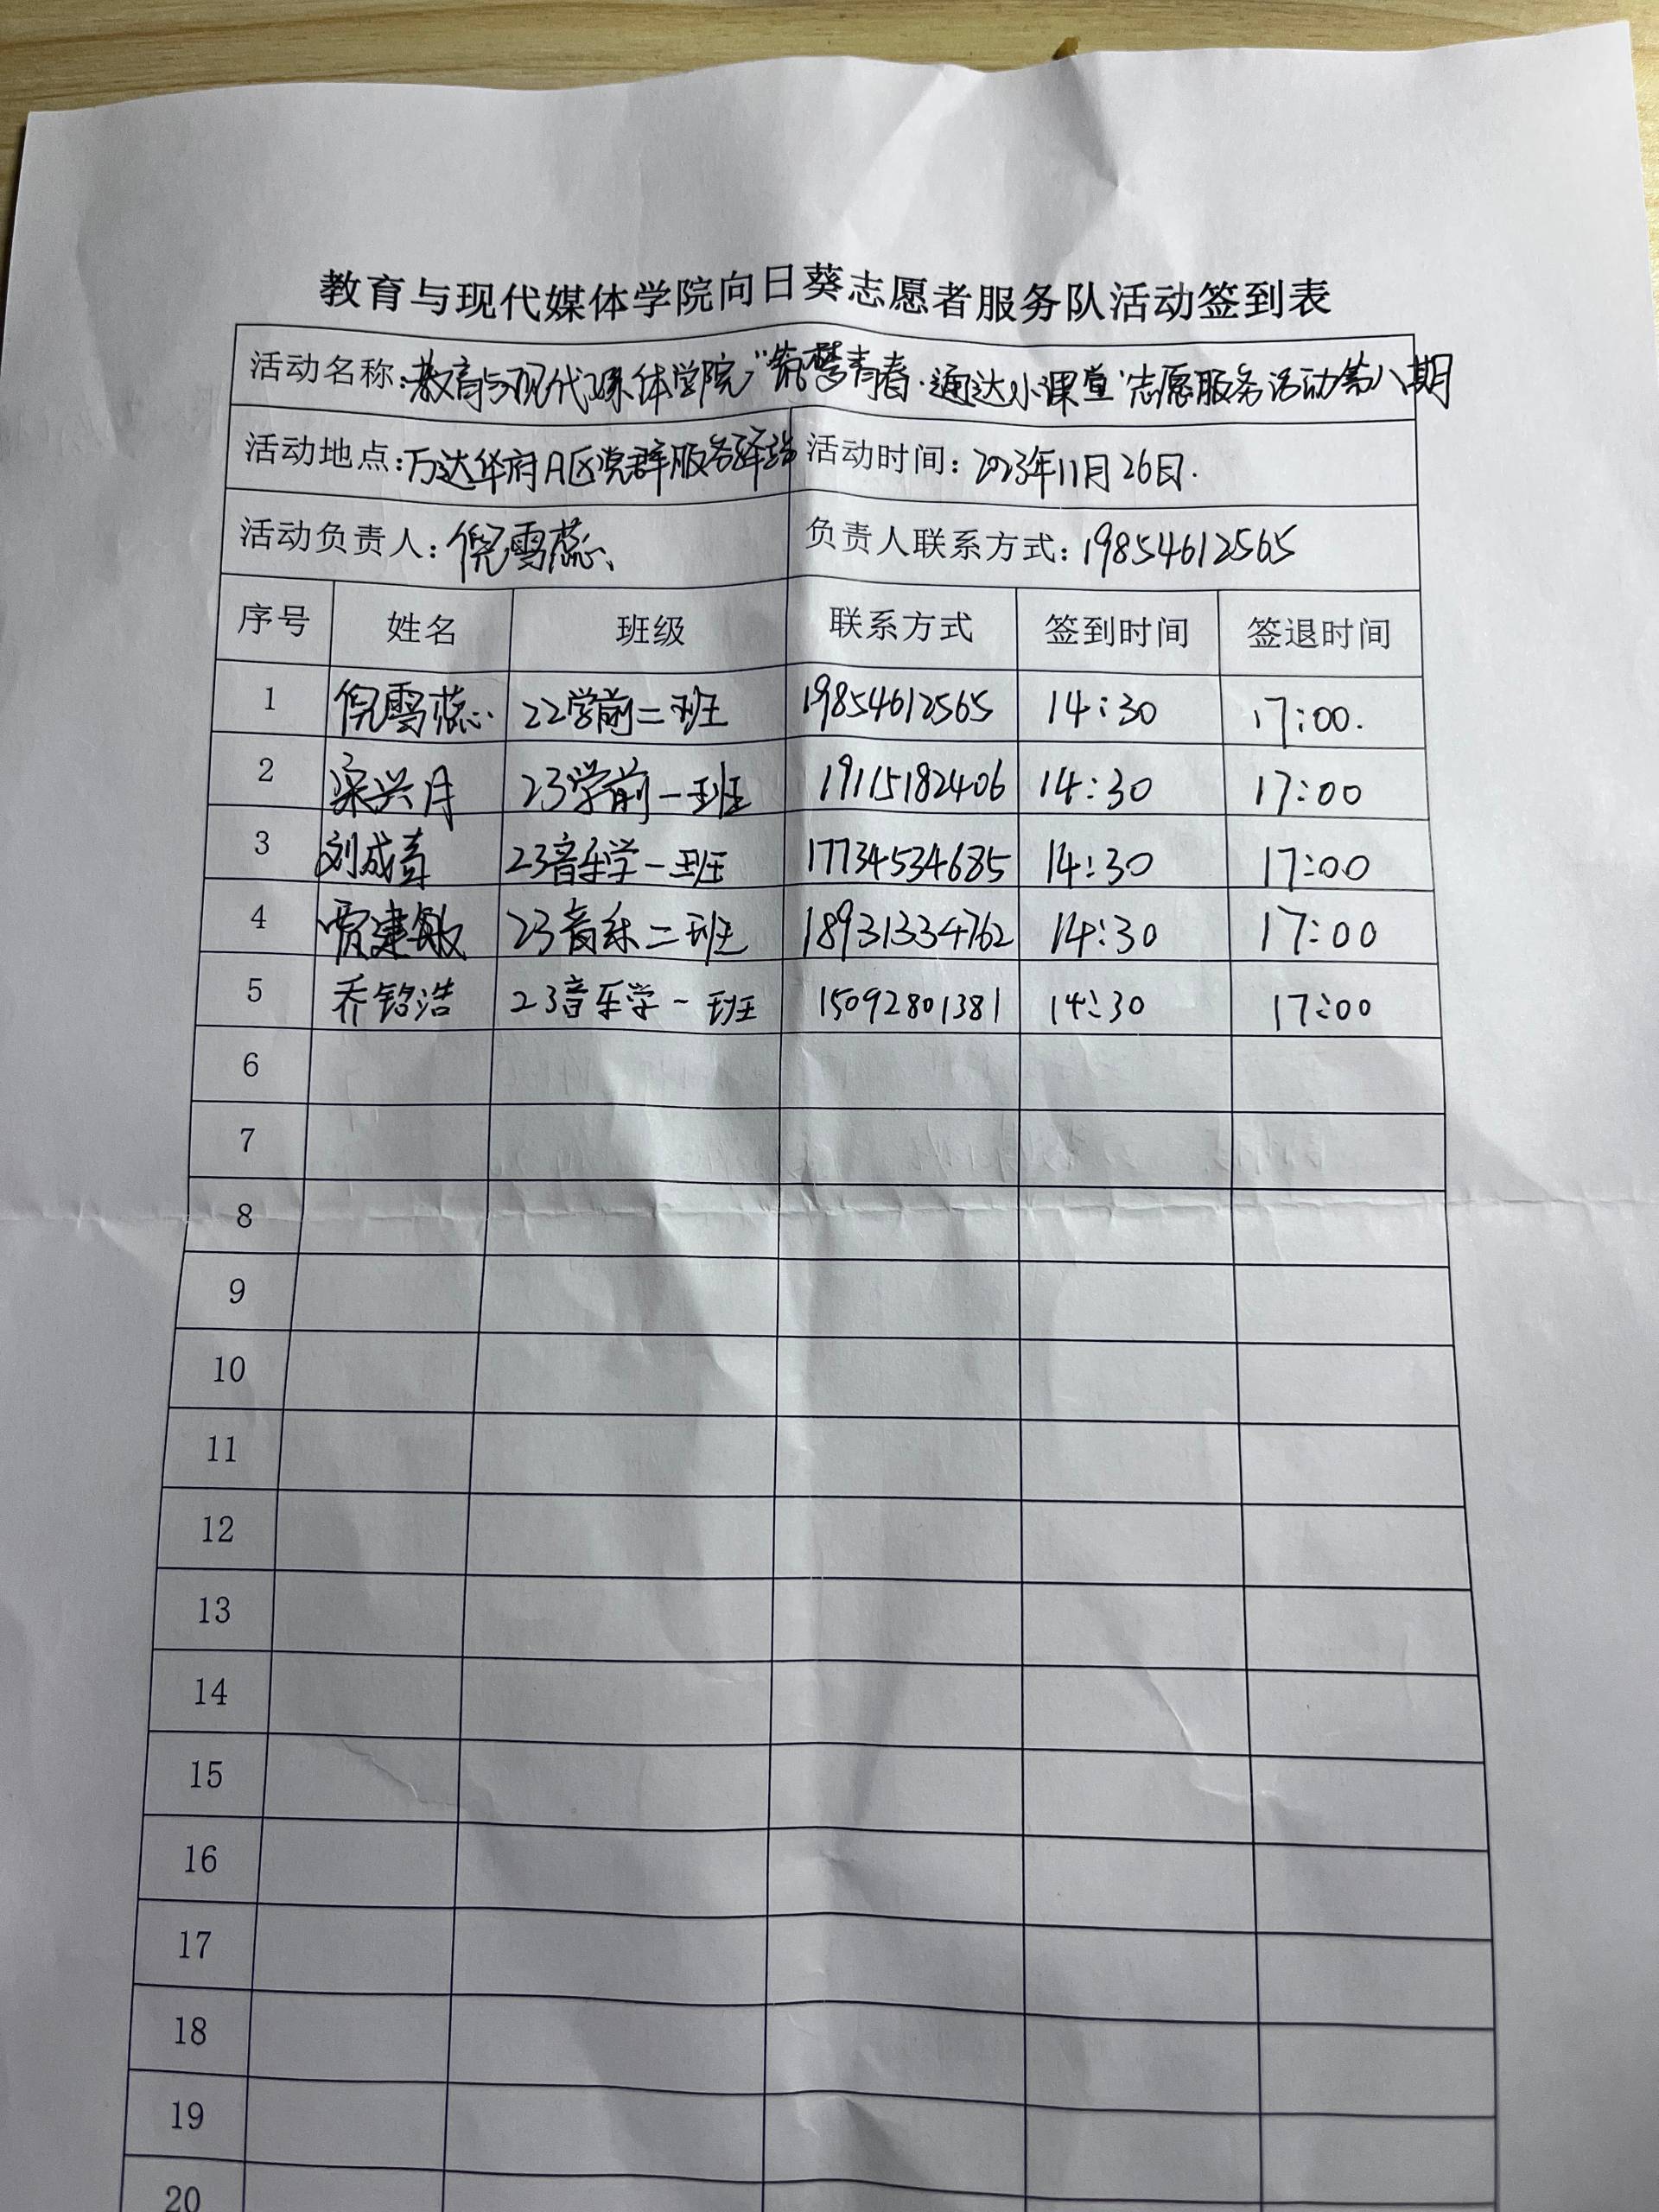 教育与现代媒体学院向日葵志愿者服务队活动签到表
活动名称:教育与现代媒体学院"筑梦青春·通达小课堂"志愿服务活动第八期
活动地点:万达华府A区党群服务驿站 活动时间:2023年11月26日.
活动负责人:倪雪蕊 负责人联系方式:19854612565
序号 姓名 班级 联系方式 签到时间 签退时间
1 倪雪蕊 22学前二班 19854612565 14:30 17:00.
2 梁兴月 23学前一班 19115182406 14:30 17:00
3 23音乐学一班 17734534685 14:30 17:00
4 贾建敏 23音乐二班 18931334762 14:30 17:00
5 乔铭浩 23音乐学一班 15092801381 14:30 17:00
6
7
8
9
10
11
12
13
14
15
16
17
18
19
20